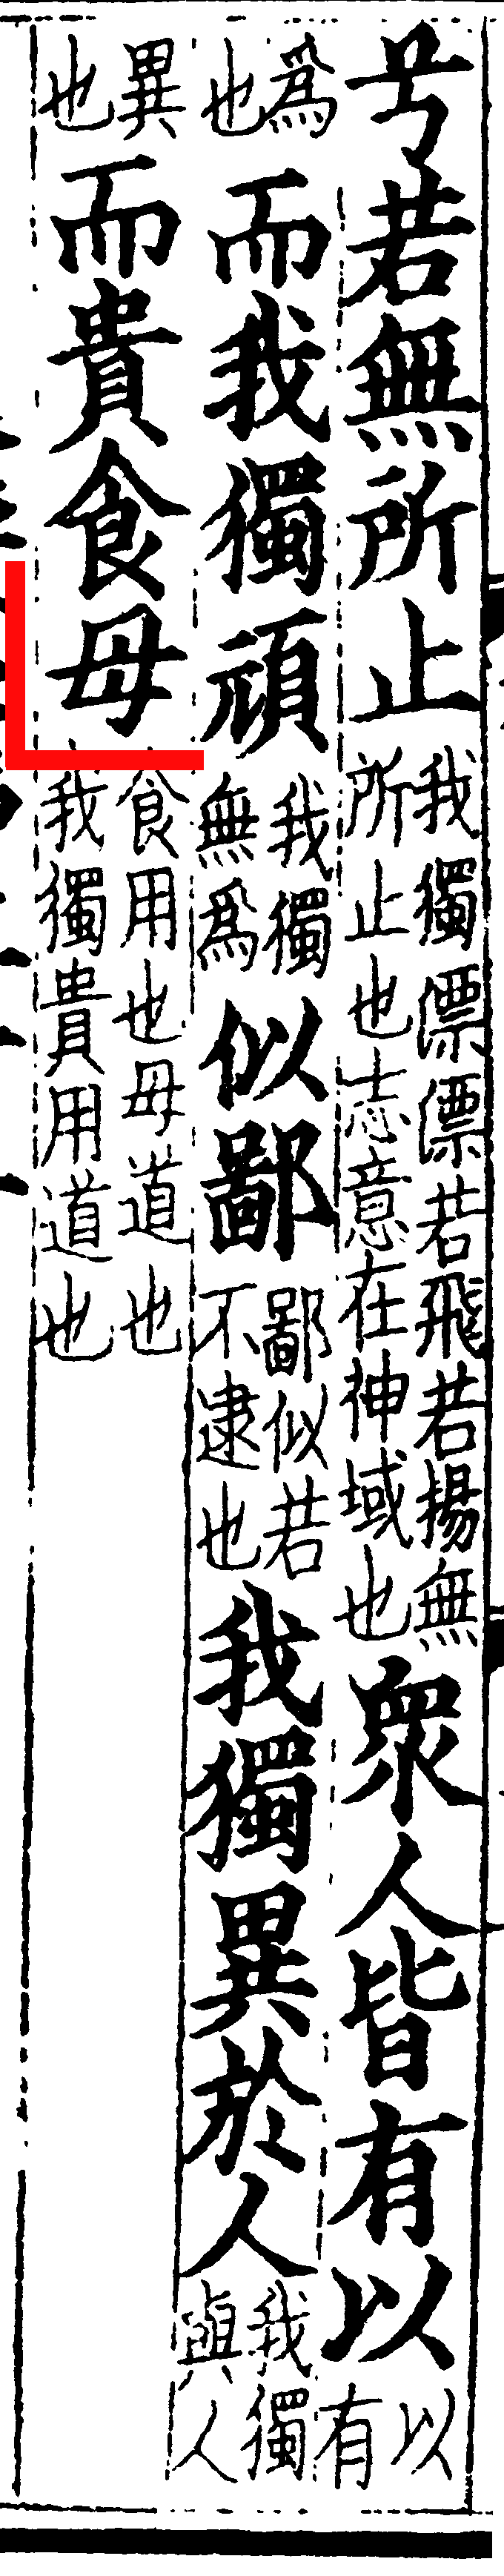 兮若無所止我獨漂漂若飛若揚無所止也志意在神域也衆人皆有以以有
爲也而我獨頑我獨無爲似鄙鄙似若不逮也我獨異於人我獨與人
異也而貴食母食用也母道也我獨貴用道也